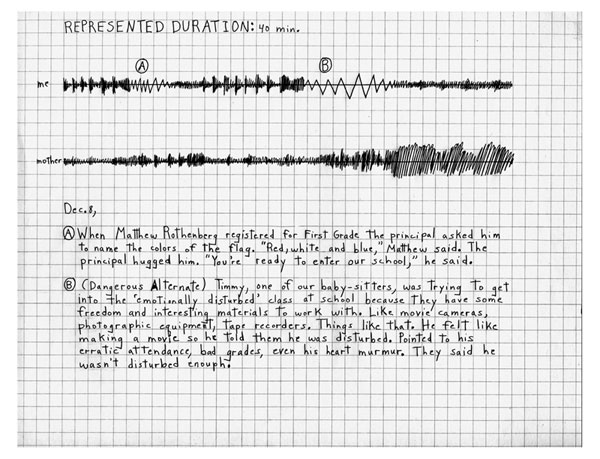 REPRESENTED DURATION: 40 min.
A B
me
mother
Dec. 8,
A When Matthew Rothenberg registered for First Grade the principal asked him
to name the colors of the flag. "Red, white and blue," Matthew said. The
principal hugged him. "You're ready to enter our school," he said.
B (Dangerous Alternate) Timmy, one of our baby-sitters, was trying to get
into the 'emotionally disturbed' class at school because they have some
freedom and interesting materials to work with. Like movie cameras,
photographic equipment, tape recorders. Things like that. He felt like
making a movie so he told them he was disturbed. Pointed to his
erratic attendance, bad grades, even his heart murmur. They said he
wasn't disturbed enough.